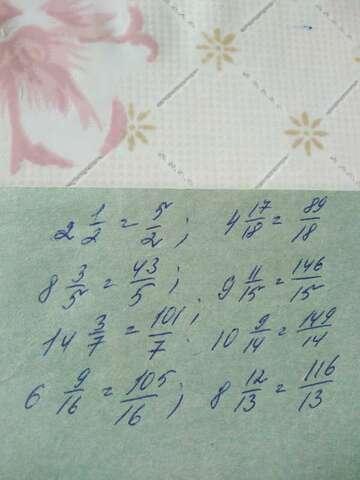 2 1/2 = 5/2 ; 4 17/18 = 89/18
8 3/5 = 43/5 ; 9 11/15 = 146/15
14 3/7 = 101/7 ; 10 9/14 = 149/14
6 9/16 = 105/16 ; 8 12/13 = 116/13